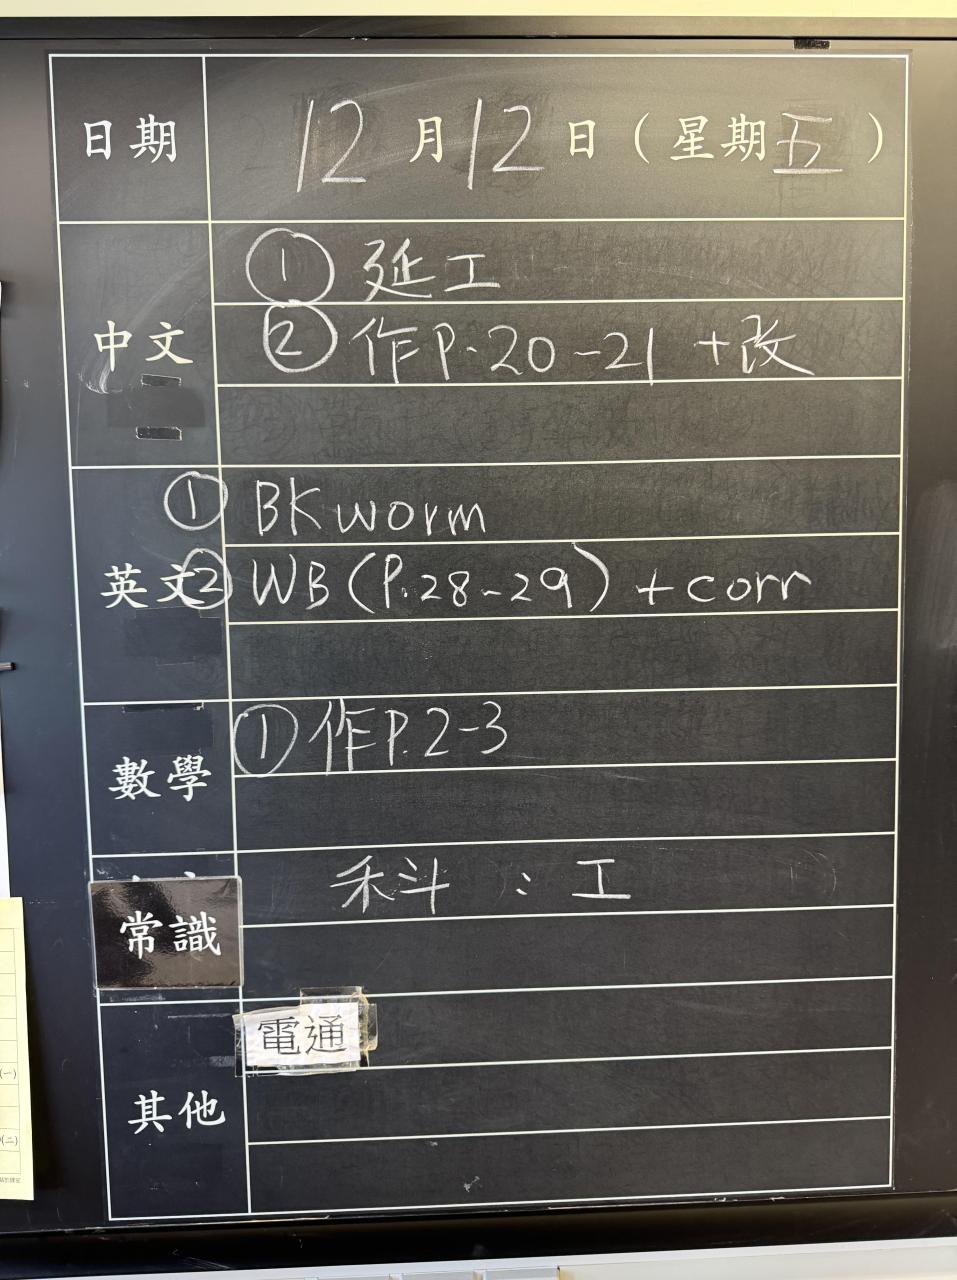 日期 12月12日（星期五）
中文 ① 延工
② 作P.20-21 +改
英文 ① BKworm
② WB(P.28-29) +corr
數學 ① 作P.2-3
常識 禾斗 : 工
其他 電通
(一)
(二)